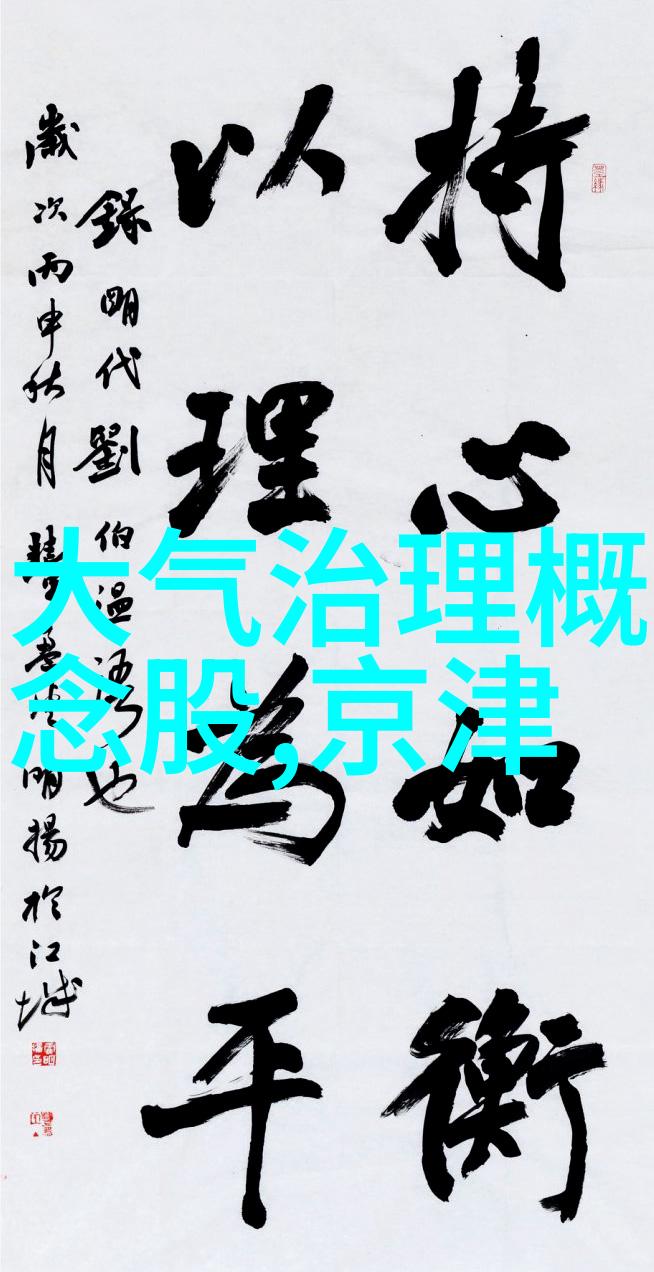 持心如衡
以理為平
錄明代劉伯温語也
歲次丙申秋月明揚於江城
大气治理概
念股,京津